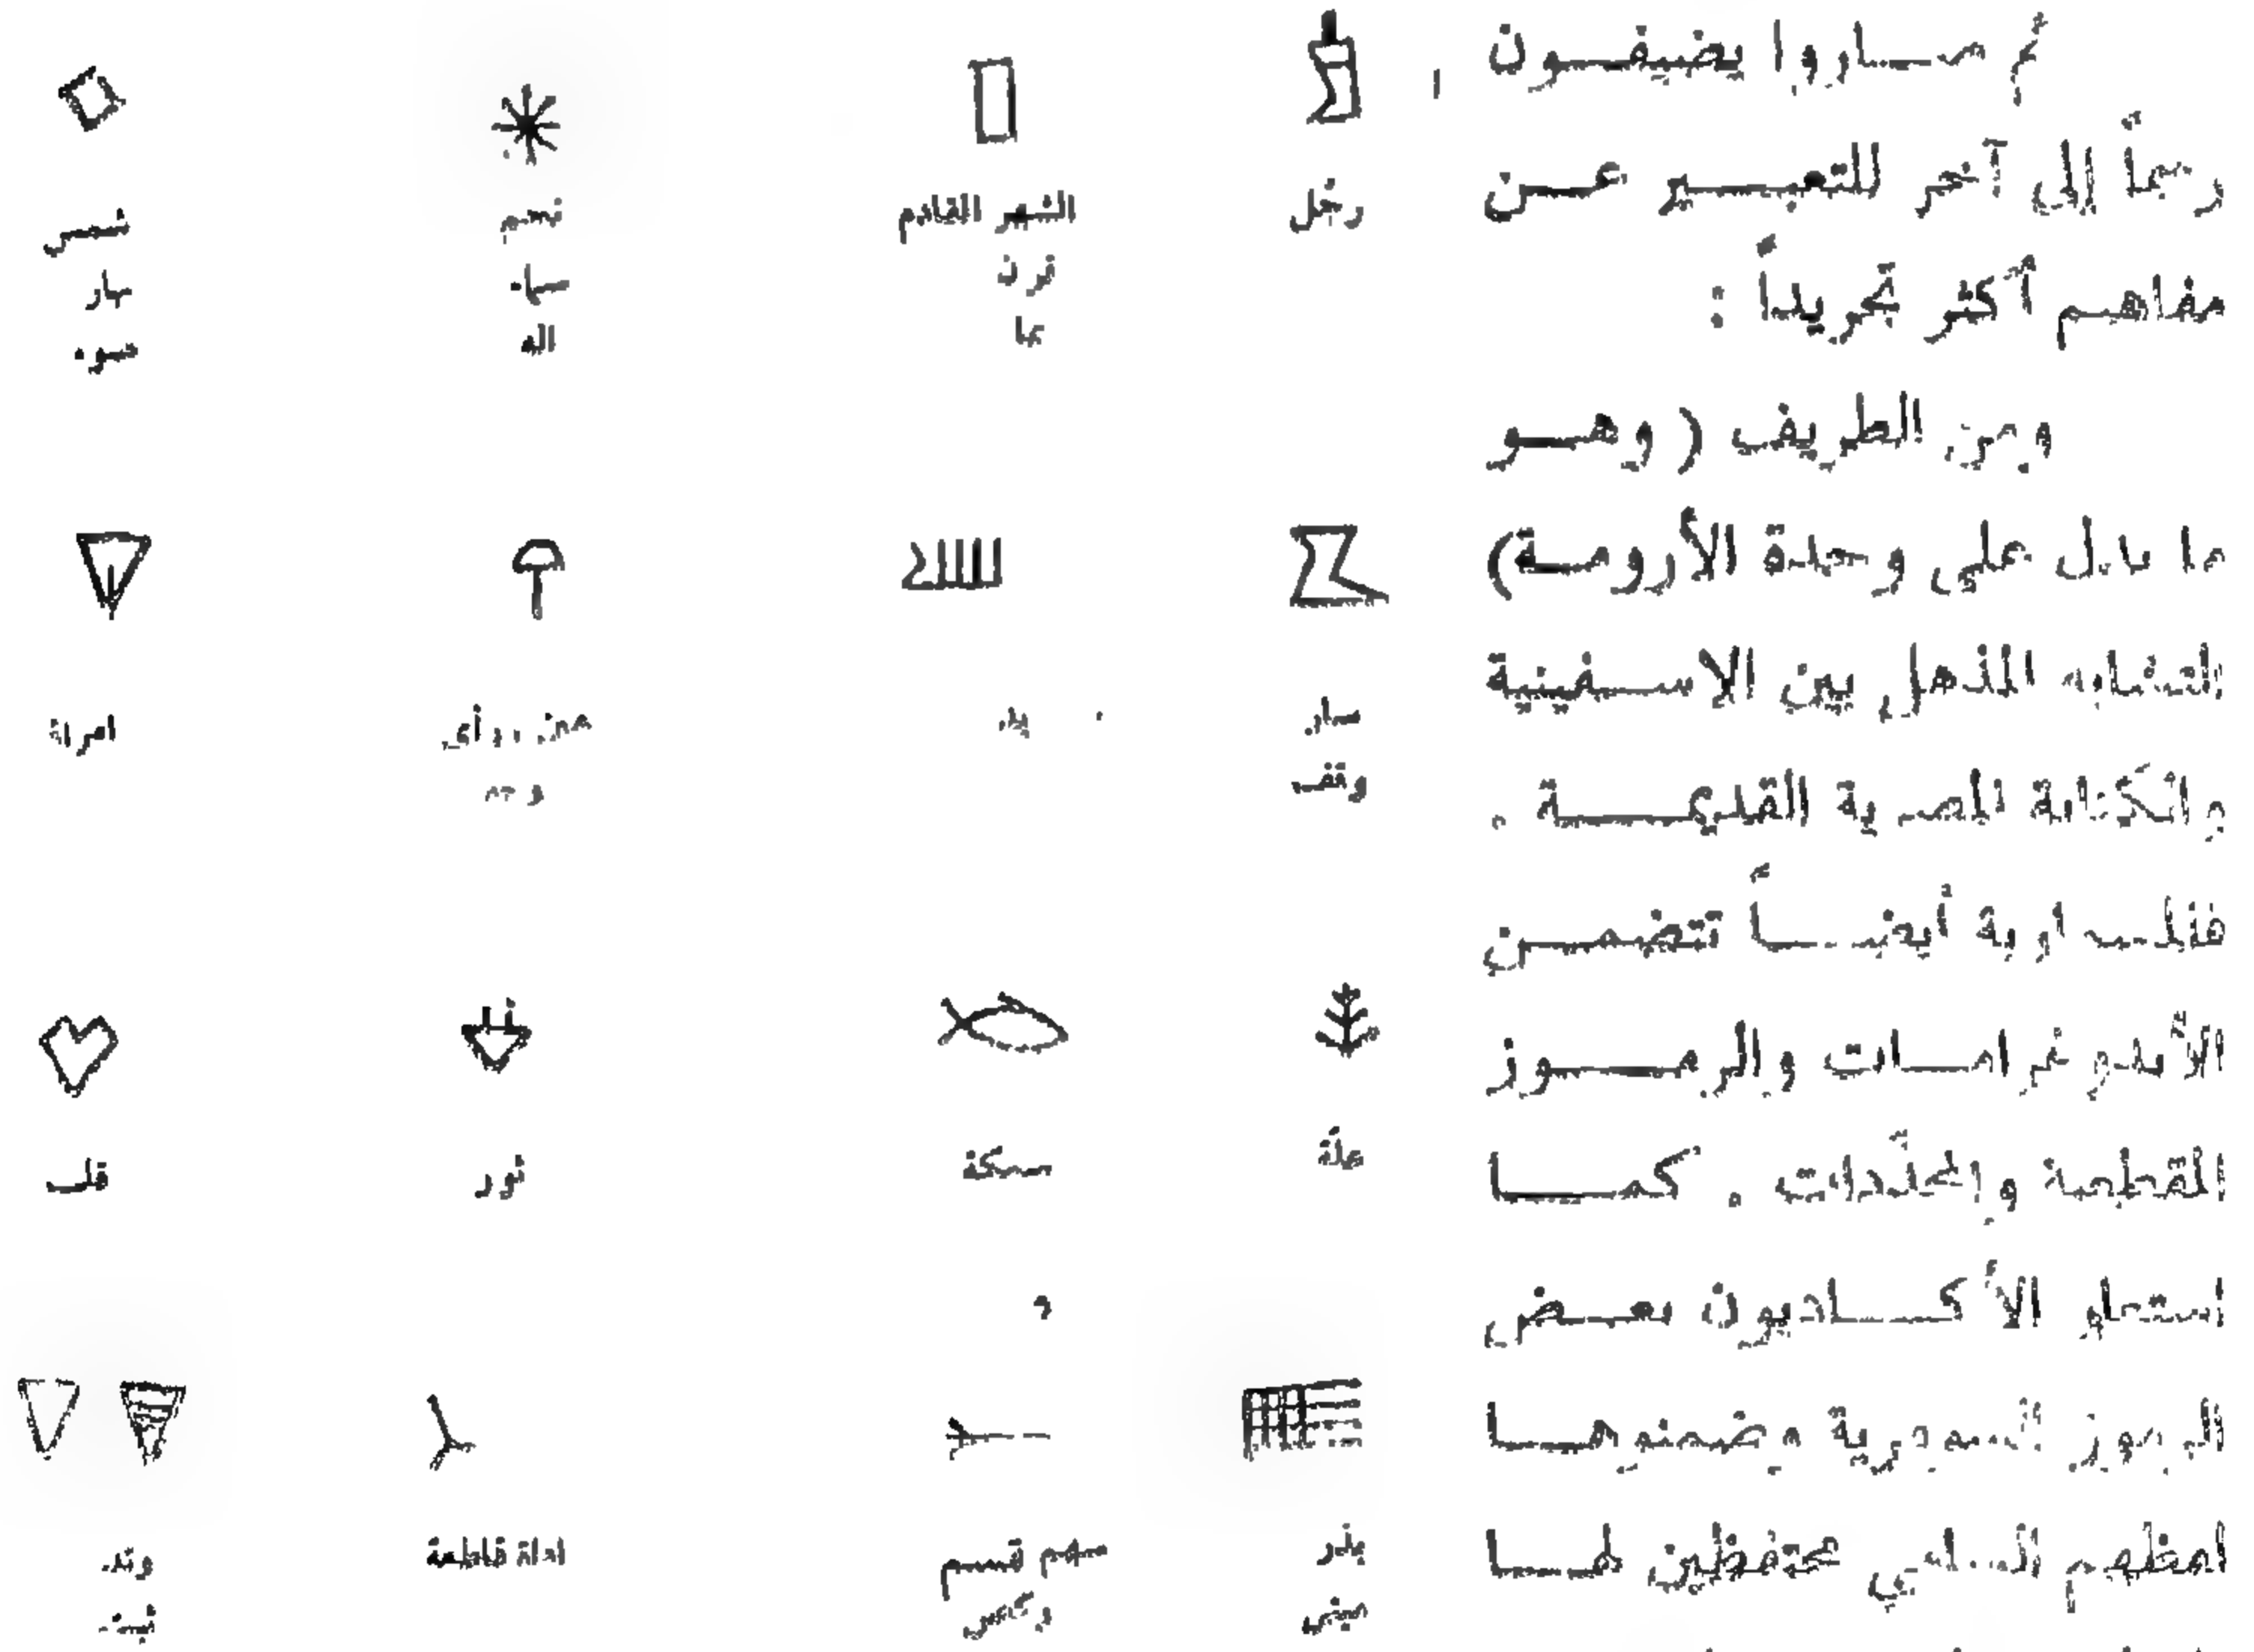 ثم صاروا يضيفون
رسماً إلى آخر للتعبير عن
مفاهيم أكثر تجريداً :
ومن الطريف ( وهو
ما يدل على وحدة الأرومة)
التشابه المذهل بين الإسفينية
والكتابة المصرية القديمة .
أيضاً تتضمن
الأيديوغرامات والرموز
المقطعية والمحدّدات . كما
استعار الأكاديون بعض
الرموز السومرية وضمنوها
محتفظين لها
رجل
الشهر القادم
قرن
نما
نجم
سماء
اله
شمس
نهار
ضوء
سار
وقف
يد
امرأة
غلة
سمكة
ثور
قلب
بذر
سهم قسم
اداة قاطعة
وتد